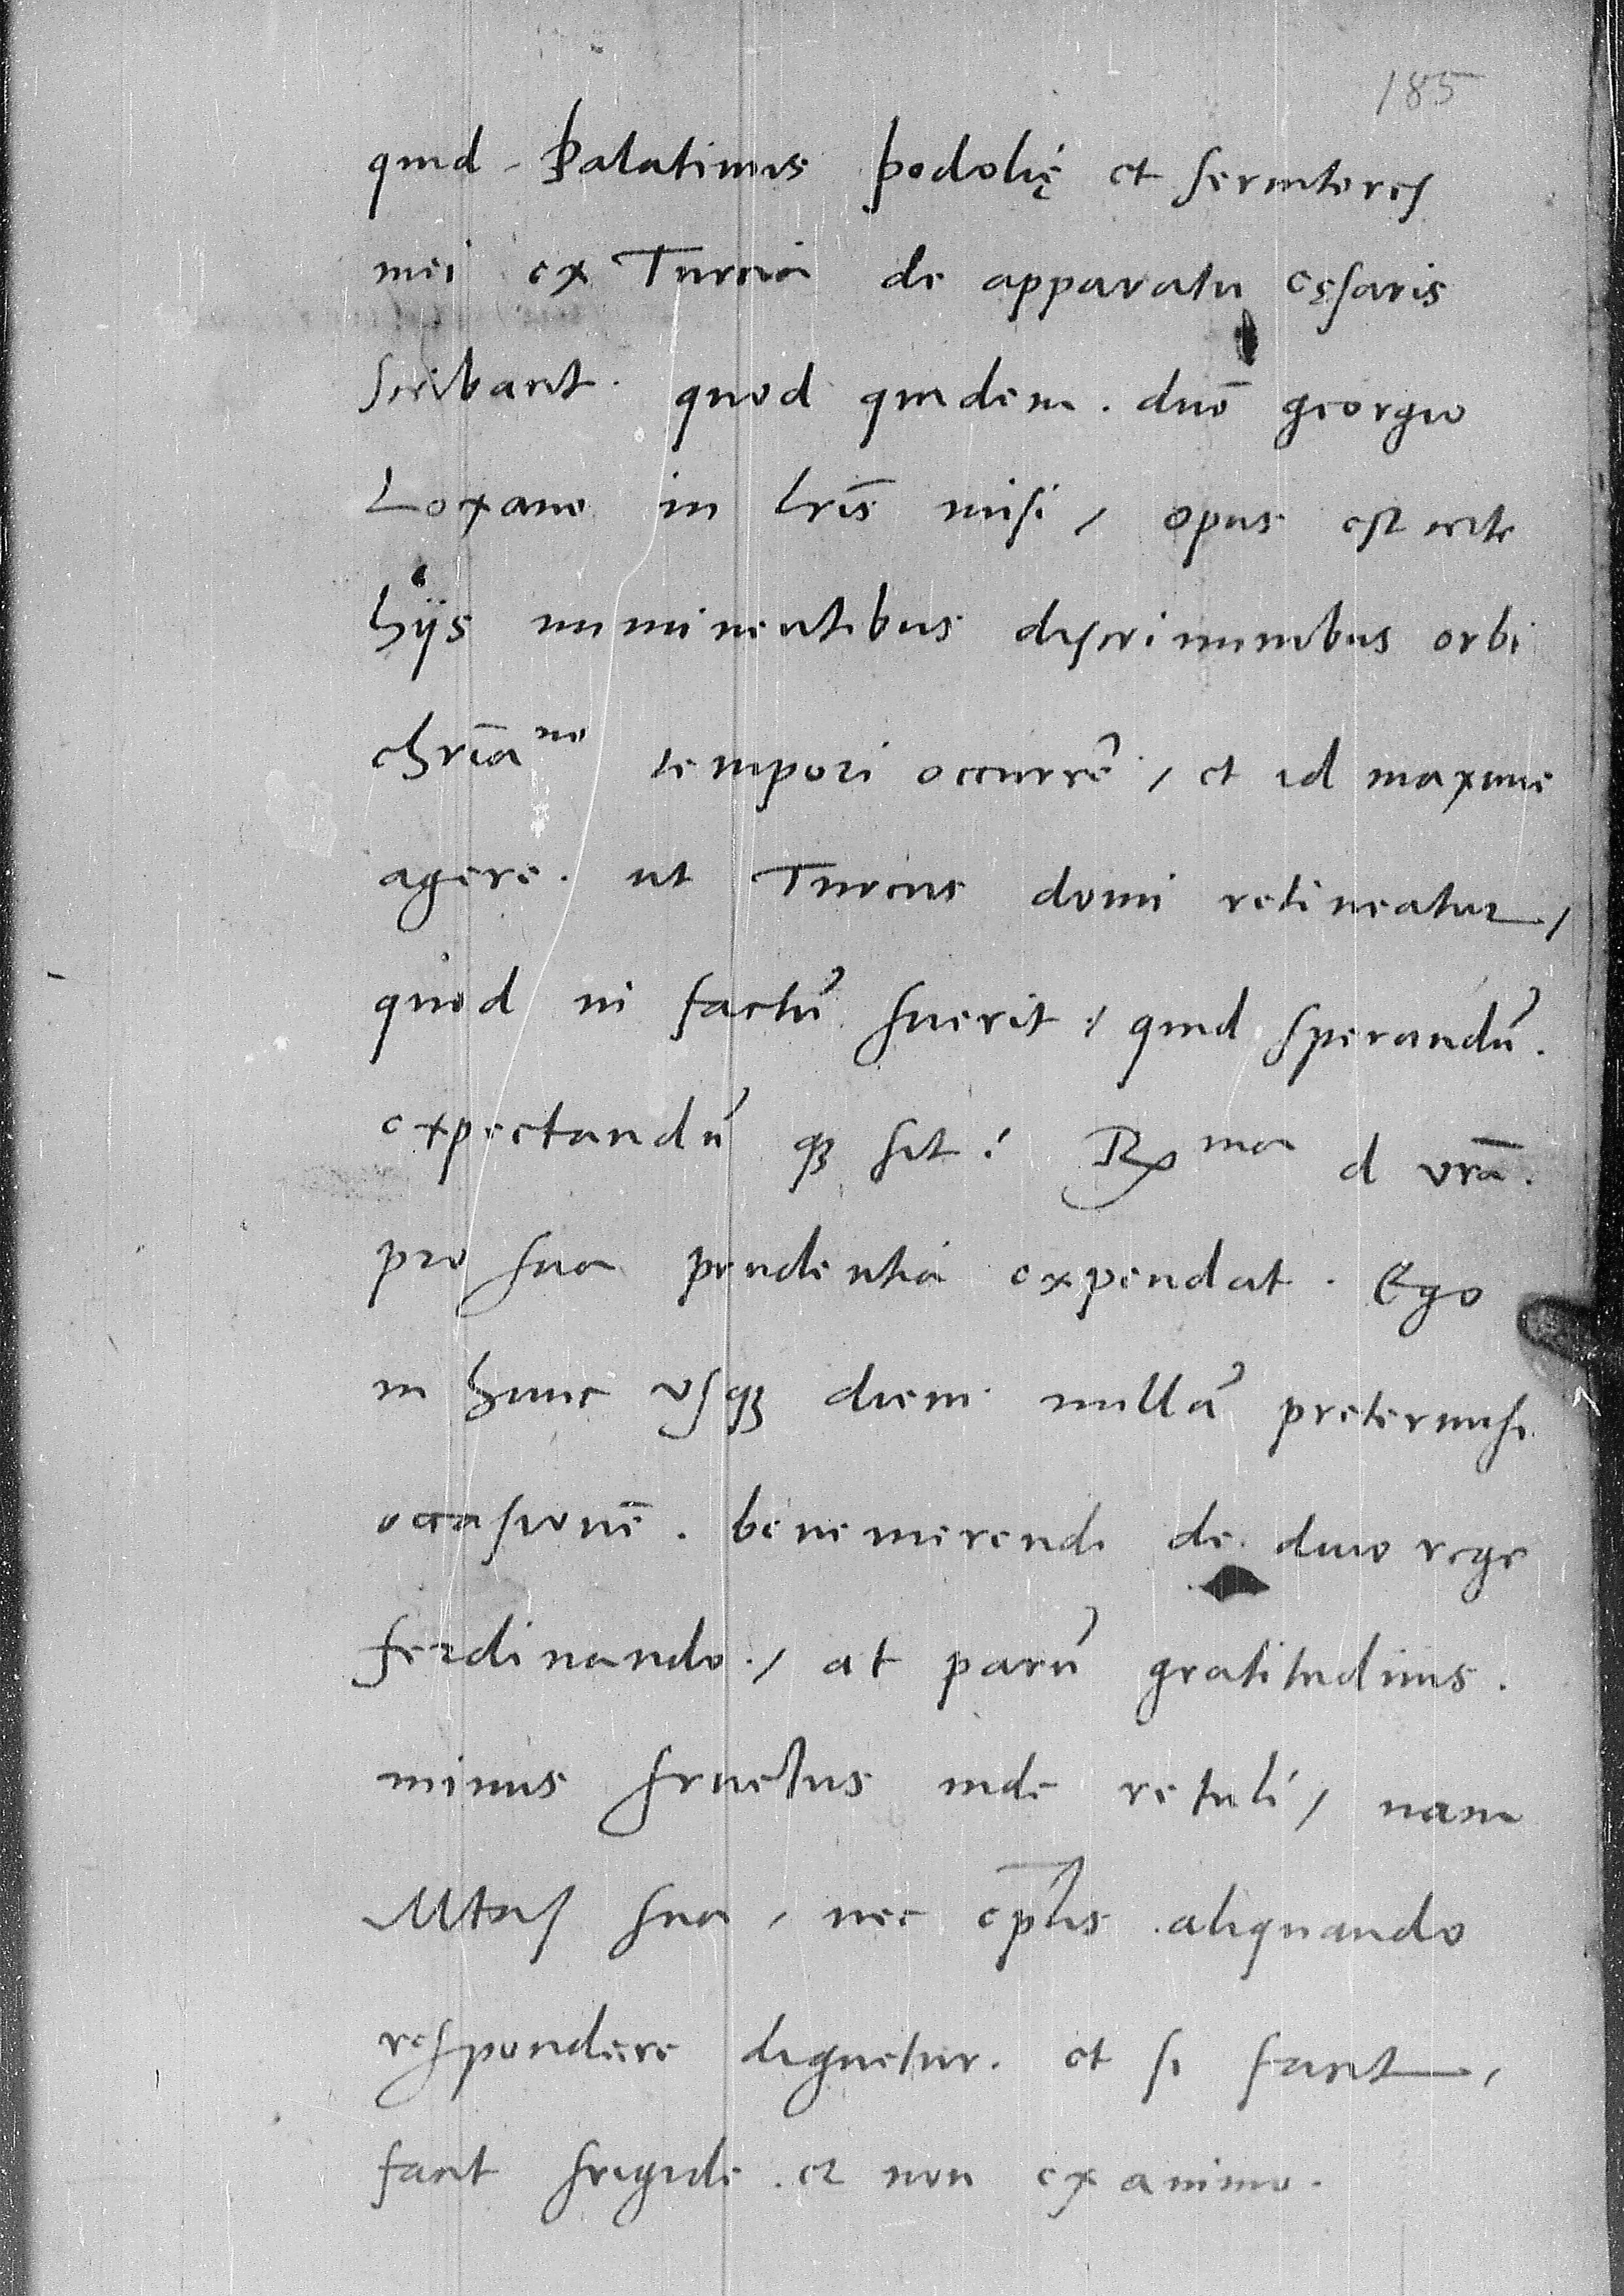 185
quid Palatinus Podolię et seruitores
mei ex Turcia de apparatu cęsaris
scribant. quod quidem. dnō georgio
Loxano in lrīs misi, opus est certe
hijs imminentibus discriminibus orbi
chrīano tempori occurrē, et id maxime
agere. ut Turcus domi retineatur,
quod ni factū fuerit: quid sperandū.
expectandū qꝫ sit: Rxma d vrā.
pro sua prudentia expendat. Ego
in hunc vsqꝫ diem nullā pretermisi
occasionē. benemerendi de diuo rege
ferdinando, at parū gratitudinis.
minus fructus inde retuli, nam
Mtas sua, nec eplīs aliquando
respondere dignetur. et si facit,
facit frigide. et non ex animo.